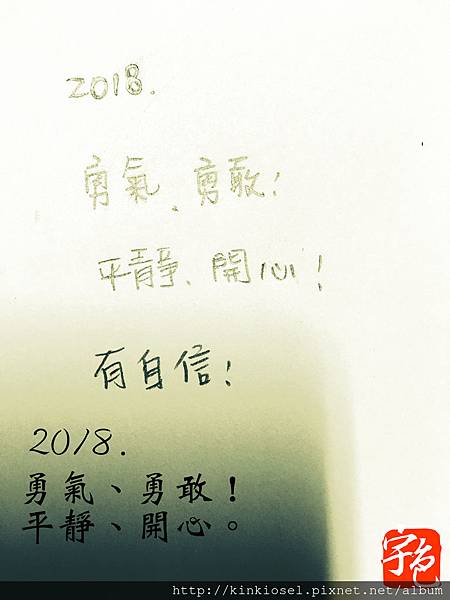 2018.
勇氣、勇敢!
平靜、開心!
有自信!
2018.
勇氣、勇敢！
平靜、開心。
宇色
http://kinkiosel.pixnet.net/album